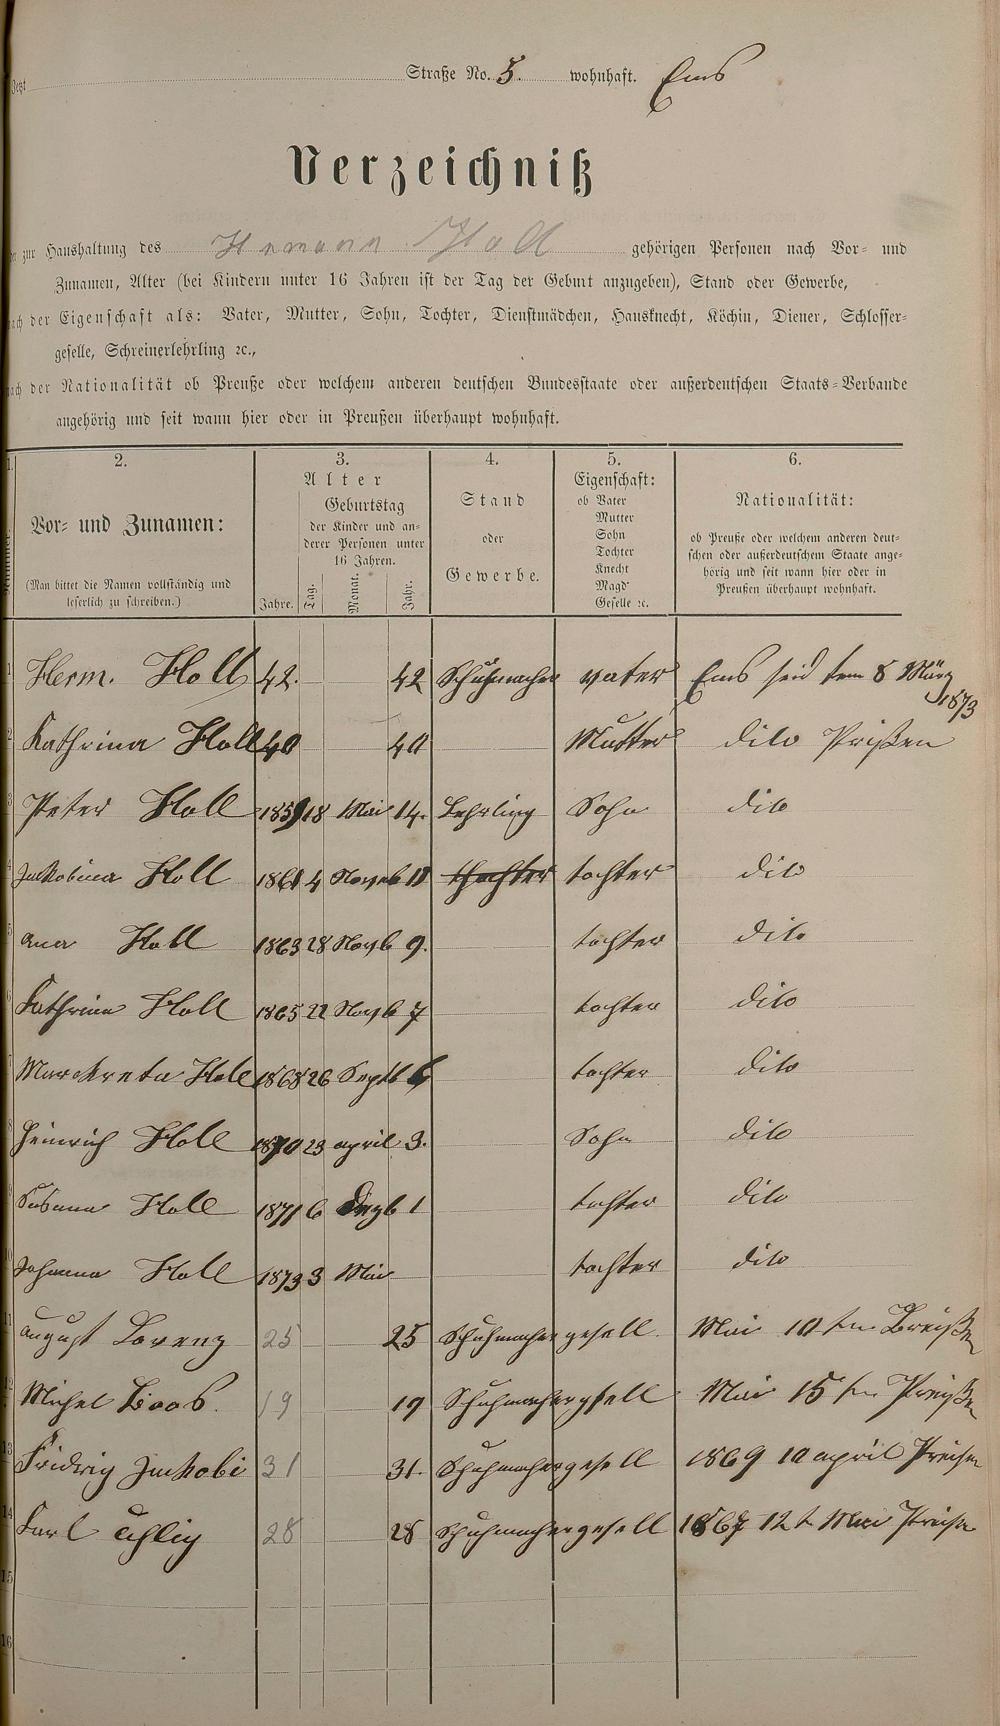 Jetzt Straße No. 5. wohnhaft. Ems
Verzeichniß
zur Haushaltung des Hemann Holl gehörigen Personen nach Vor- und
Zunamen, Alter (bei Kindern unter 16 Jahren ist der Tag der Geburt anzugeben), Stand oder Gewerbe,
nach der Eigenschaft als: Vater, Mutter, Sohn, Tochter, Dienstmädchen, Hausknecht, Köchin, Diener, Schlosser-
geselle, Schreinerlehrling ꝛc.,
nach der Nationalität ob Preuße oder welchem anderen deutschen Bundesstaate oder außerdeutschen Staats-Verbande
angehörig und seit wann hier oder in Preußen überhaupt wohnhaft.
1. 2. 3. 4. 5. 6.
Vor- und Zunamen:
(Man bittet die Namen vollständig und
leserlich zu schreiben.)
Alter
Geburtstag
der Kinder und an-
derer Personen unter
16 Jahren.
Jahre. Tag. Monat. Jahr.
Stand
oder
Gewerbe.
Eigenschaft:
ob Vater
Mutter
Sohn
Tochter
Knecht
Magd
Geselle ꝛc.
Nationalität:
ob Preuße oder welchem anderen deut-
schen oder außerdeutschem Staate ange-
hörig und seit wann hier oder in
Preußen überhaupt wohnhaft.
1 Herm. Holl 42. 42 Schuhmacher vater Ems seid tem 8 März 1873
2 Kathrina Holl 40 40 Mutter dito Prißen
3 Peter Holl 1859 18 Mai 14. Lehrling Sohn dito
4 Jakobina Holl 1861 4 Noveb 11 thochter tochter dito
5 ana Holl 1863 28 Novb 9. tochter dito
6 Kathrina Holl 1865 22 Novb 7 tochter dito
7 Marckreta Holl 1868 26 Septb tochter dito
8 Heinrich Holl 1870 23 april 3. Sohn dito
9 Susana Holl 1871 6 Dezb 1 tochter dito
10 Johanna Holl 1873 3 Mai tochter dito
11 august Lorenz 25 25 Schuhmacher gesell. Mai 10 ten Breißen
12 Michel Boos. 19 19 Schuhmacher gsell Mai 15 ten Preißen
13 Fridrig Jackobi 31 31. Schuhmacher gesell 1869 10 april Preisen
14 Karl Uhlig 28 28 Schuhmacher gesell 1867 12 t Mai Preisen
15
16